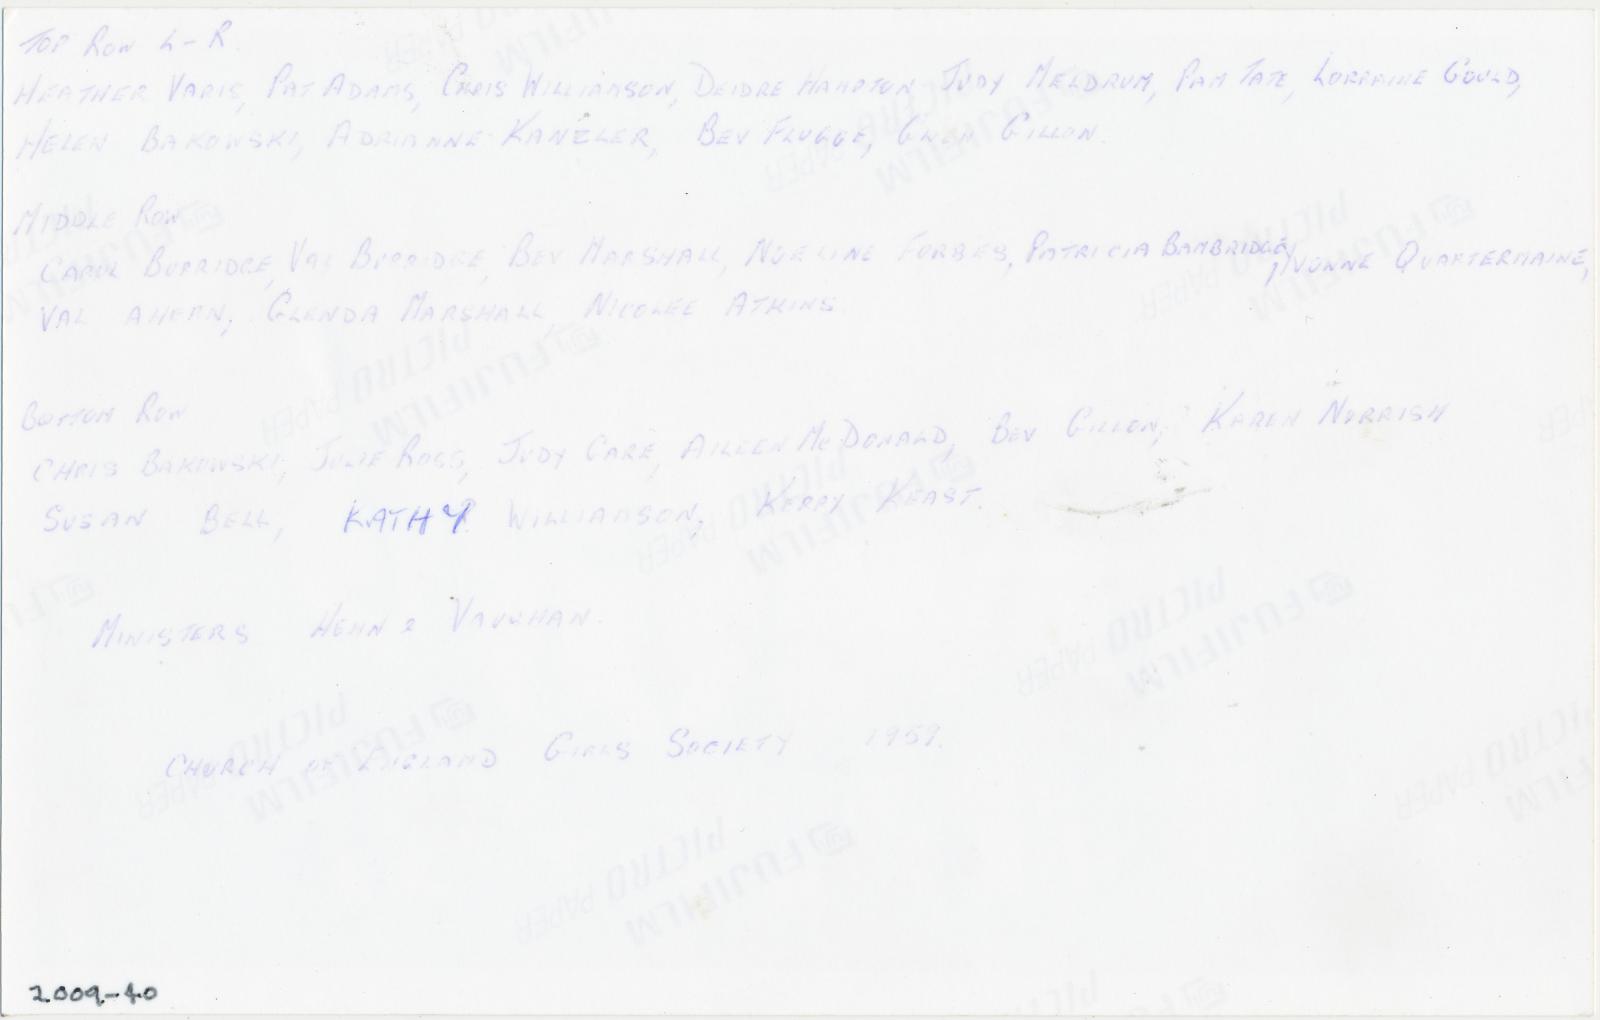 TOP ROW L-R.
HEATHER VARIS, PAT ADAMS, CHRIS WILLIAMSON, DEIDRE HAMPTON JUDY MELDRUM, PAM TATE, LORRAINE GOULD,
HELEN BAKOWSKI, ADRIANNE KANZLER, BEV FLUGGE, GWEN GILLON.
MIDDLE ROW
CAROL BURRIDGE, VAL BURRIDGE, BEV MARSHALL, NOELINE FORBES, PATRICIA BAMBRIDGE, YVONNE QUARTERMAINE,
VAL AHERN, GLENDA MARSHALL NICOLEE ATKINS.
BOTTOM ROW
CHRIS BAKOWSKI, JULIE ROSS, JUDY CARE, AILEEN McDONALD, BEV GILLON, KAREN NORRISH
SUSAN BELL, KATHY WILLIAMSON, KERRY KEAST.
MINISTERS HEHN & VAUGHAN.
CHURCH OF ENGLAND GIRLS SOCIETY 1959.
2009-40
FUJIFILM
PICTRO PAPER